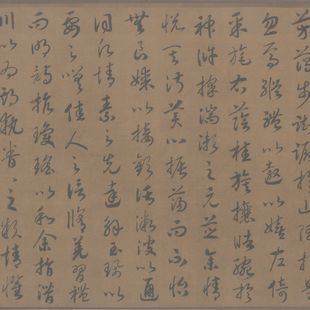 芳藹步踟躕於山隅於是
忽焉縱體以遨以嬉左倚
采旄右蔭桂旗攘皓腕於
神滸採湍瀨之玄芝余情
悅其淑美心振蕩而不怡
無良媒以接歡託微波以通
詞願情素之先達解玉珮以
要之嗟佳人之信脩羌習禮
而明詩抗瓊珶以和余指潛
川以為期執眷〻之款情懼